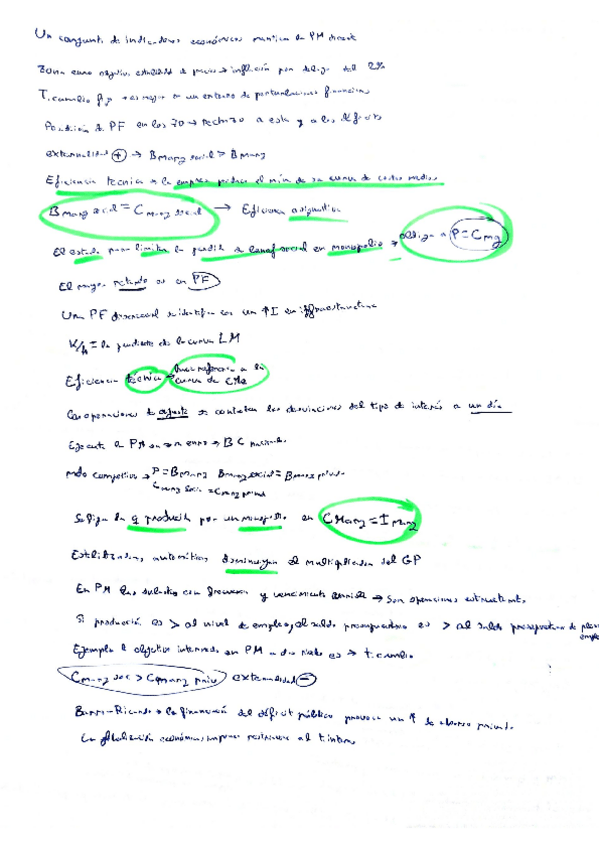 Un conjunto de indicadores económicos mantiene la PM directa
Zona euro objetivo estabilidad de precios → inflación por debajo del 2%
T. cambio fijo → es mejor en un entorno de perturbaciones financieras
Posición de PF en los 70 → rechazo a esta y a los déficits
externalidad + → Bmarg social > Bmarg
Eficiencia técnica → la empresa produce el mín de su curva de costes medios
Bmarg social = Cmarg social → Eficiencia asignativa
El estado para limitar la pérdida de benef social en monopolio → obliga a P = Cmg
El mayor retardo es en PF
Una PF se identifica con un ↑I en infraestructura
K/h = la pendiente de la curva LM
Eficiencia técnica → hace referencia a la curva de CMe
Las operaciones de ajuste → controlan las desviaciones del tipo de interés a un día
Ejecuta la PM en zona euro → BC nacionales
mdo competitivo → P = Bmarg Bmarg social = Bmarg privado
Cmarg social = Cmarg privad
Se fija la q producida por un monopolio en CMarg = I marg
Estabilizadores automáticos disminuyen el multiplicador del GP
En PM las subastas con frecuencia y vencimiento → son operaciones estructurales
Si producción es > al nivel de empleo, el saldo presupuestario es > al saldo presupuestario de pleno empleo
Ejemplo de objetivo intermedio en PM a dos niveles es → t. cambio
Cmarg soc > Cmarg priv externalidad −
Barro-Ricardo → la financiación del déficit público provoca un ↑ de ahorro privado
La globalización económica impone restricciones al